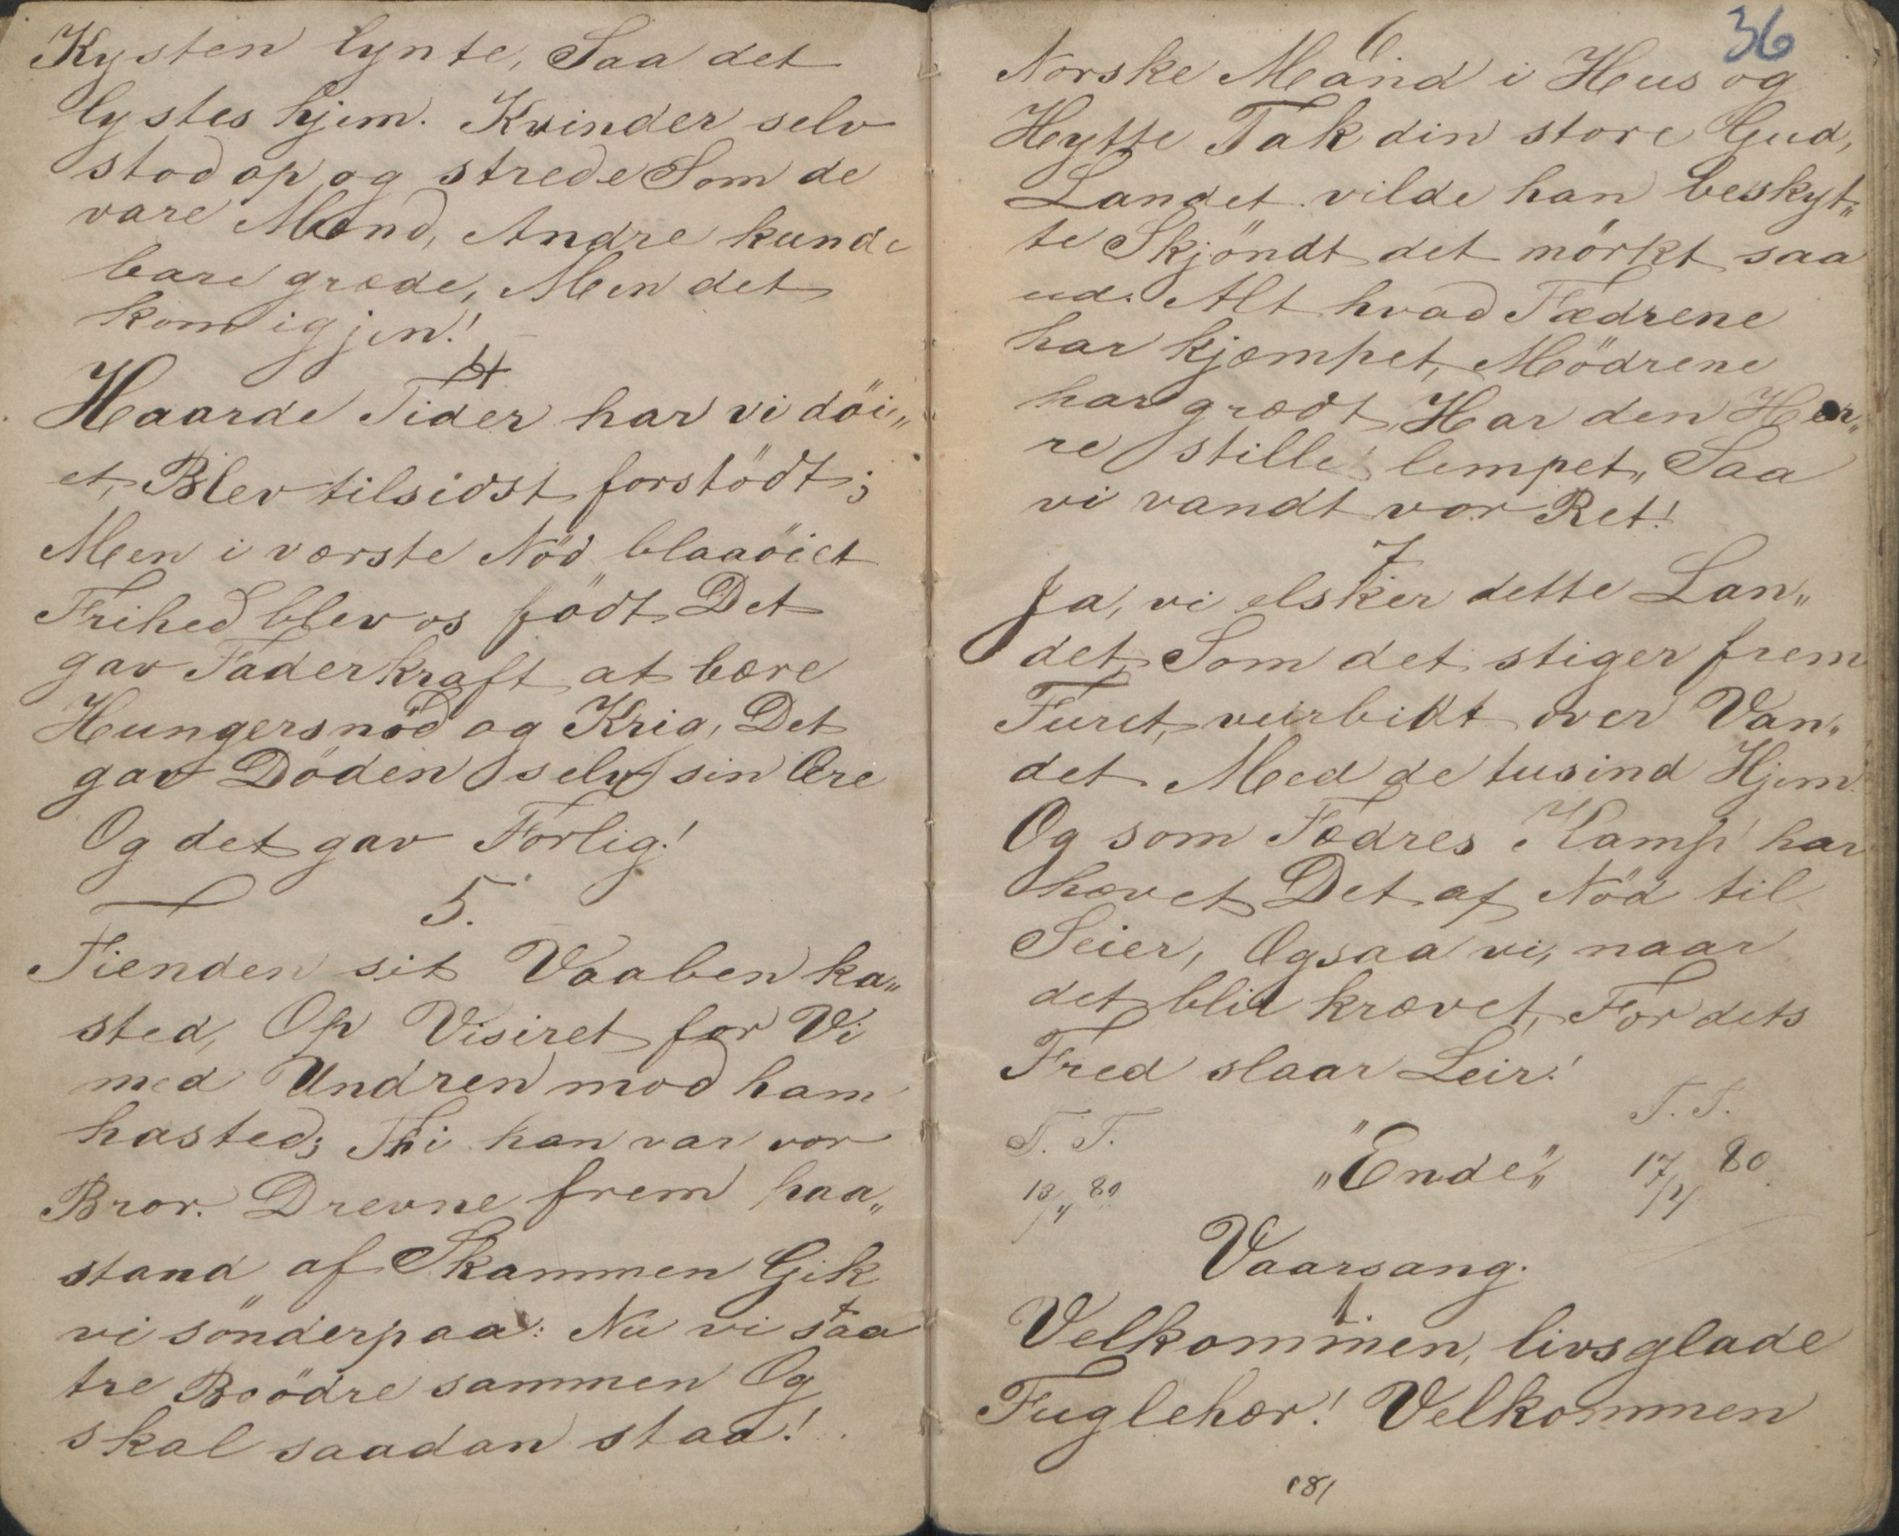 Kysten lynte, Saa det
lystes hjem. Kvinder selv
stod op og strede Som de
vare Mænd, Andre kunde
bare græde, Men det
kom igjen!
4
Haarde Tider har vi döi„
et, Blev tilsidst forstödt;
Men i værste Nöd blaaöiet
Frihed blev os födt. Det
gav Faderkraft at bære
Hungersnöd og Krig, Det
gav Döden selv sin Ære
Og det gav Forlig!
5.
Fienden sit Vaaben ka„
sted, Op Visiret for Vi
med Undren mod ham
hasted; Thi han var vor
Bror. Drevne frem paa„
stand af Skammen Gik
vi sönderpaa: Nu vi staa
tre Brödre sammen Og
skal saadan staa!
36
6
Norske Mand i Hus og
Hytte Tak din store Gud,
Landet vilde han beskyt„
te Skjöndt det mörkt saa
ud. Alt hvad Fædrene
har kjæmpet, Mödrene
har grædt, Har den Her„
re stille lempet„ Saa
vi vandt vor Ret!
7
Ja, vi elsker dette Lan„
det, Som det stiger frem
Furet, veirbidt over Van„
det Med de tusind Hjem.
Og som Fædres Kamp har
hævet Det af Nöd til
Seier, Ogsaa vi, naar
det blir krævet, For dets
Fred slaar Leir!
T. T. T. T.
„Ende„ 17/4 80
Vaarsang.
1
Velkommen, livsglade
Fuglehær! Velkommen
181